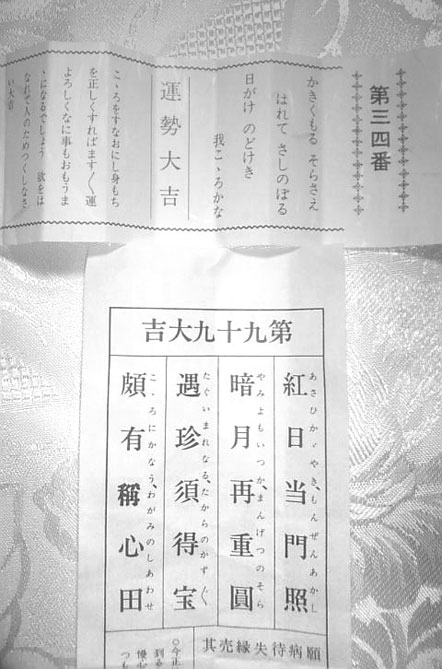 第三四番
かきくもる そらさえ
はれて さしのぼる
日がけ のどけき
我こゝろかな
運勢大吉
こゝろをすなおにし身もち
を正しくすればます〱運
よろしくなに事もおもうま
ゝになるでしょう 欲をは
なれて人のためつくしなさ
い大吉
第九十九大吉
紅日当門照
あさひかゞやき、もんぜんあかし
暗月再重圓
やみよもいつか、まんげつのそら
遇珍須得宝
たぐいまれなる、たからのかずぐ
頗有稱心田
こゝろにかなう、わがみのしあわせ
願病待失縁売其
○今正
到る
慢心
つも